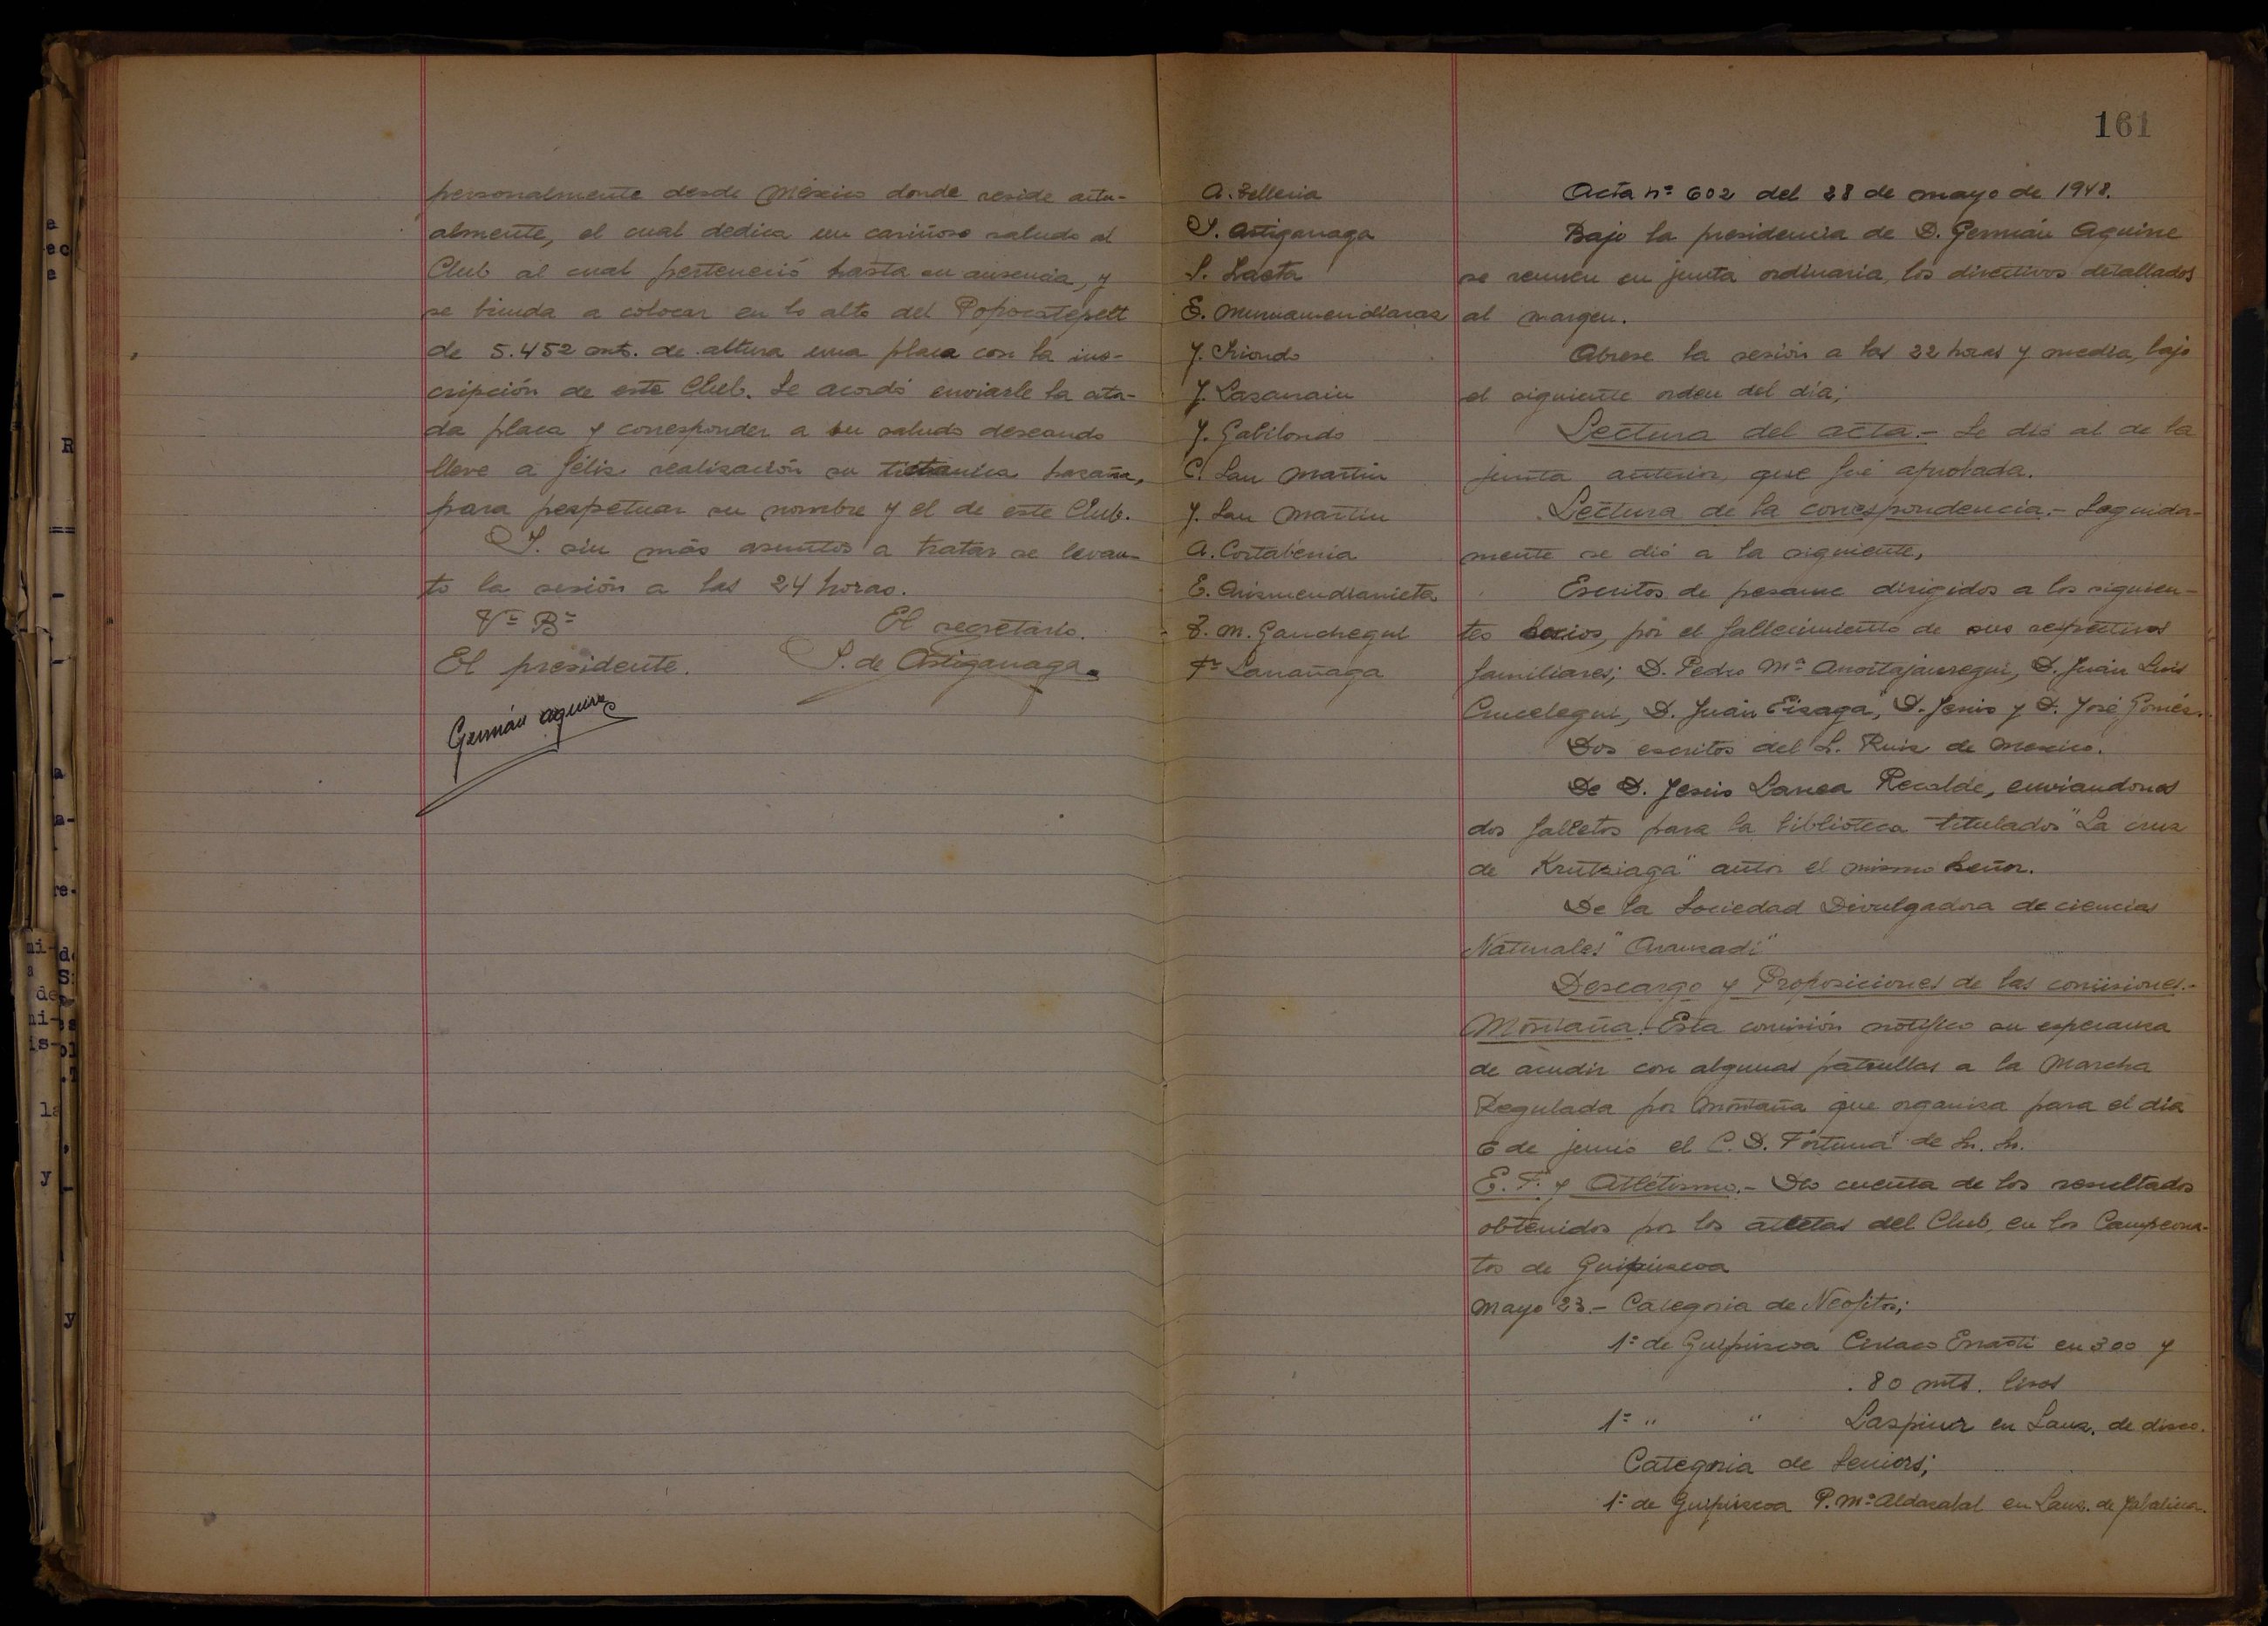 personalmente desde México donde reside actu-
almente, el cual dedica un cariñoso saludo al
Club al cual perteneció hasta su ausencia, y
se brinda a colocar en lo alto del Popocatepelt
de 5.452 mts. de altura una placa con la ins-
cripción de este Club. Se acordó enviarle la cita-
da placa y corresponder a su saludo deseando
lleve a féliz realización su titanica hazaña,
para perpetuar su nombre y el de este Club.
Y. sin más asuntos a tratar se levan-
to la sesión a las 24 horas.
Vº Bº
El secretario.
El presidente.
S. de Astiganaga.
Germán Aguirre
161
A. Telleria
S. Astiganaga
S. Laeta
E. Murnamendiaraz
J. Iriondo
J. Lazarrain
J. Gabilondo
C. San Martin
J. San Martin
A. Cortaberria
E. Arizmendiarrieta
J. M. Ganchegui
Fº Larrañaga
Acta nº 602 del 28 de mayo de 1948.
Bajo la presidencia de D. Germán Aguirre
se reunen en junta ordinaria, los directivos detallados
al margen.
Abrese la sesión a las 22 horas y media, bajo
el siguiente orden del día;
Lectura del acta.- Se dió al de la
junta anterior, que fué aprobada.
Lectura de la correspondencia.- Seguida-
mente se dió a la siguiente,
Escritos de pesame dirigidos a los siguien-
tes socios, por el fallecimiento de sus respectivos
familiares; D. Pedro Mª Anortajauregui, D. Juán Luis
Crucelegui, D. Juán Eizaga, D. Jesús y D. José Gomés.
Dos escritos del S. Ruiz de Mexico.
De D. Jesús Larrea Recalde, enviandonos
dos folletos para la biblioteca titulados "La cruz
de Krutziaga" autor el mismo Señor.
De la Sociedad Divulgadora de ciencias
Naturales "Aranzadi"
Descargo y Proposiciones de las comisiones.-
Montaña.- Esta comisión notifico su esperanza
de acudir con algunas patrullas a la Marcha
Regulada por Montaña que organiza para el día
6 de junio el C. D. Fortuna de Sn. Sn.
E. F. y Atlétismo.- Dio cuenta de los resultados
obtenidos por los atletas del Club, en los Campeona-
tos de Guipuzcoa
Mayo 23.- Categoria de Neofitos;
1º de Guipúzcoa Ciriaco Errasti en 300 y
80 mts. lisos
1º " " Laspiur en Lanz. de disco.
Categoria de Seniors;
1º de Guipúzcoa P. Mº Aldazabal en Lanz. de jabalina.